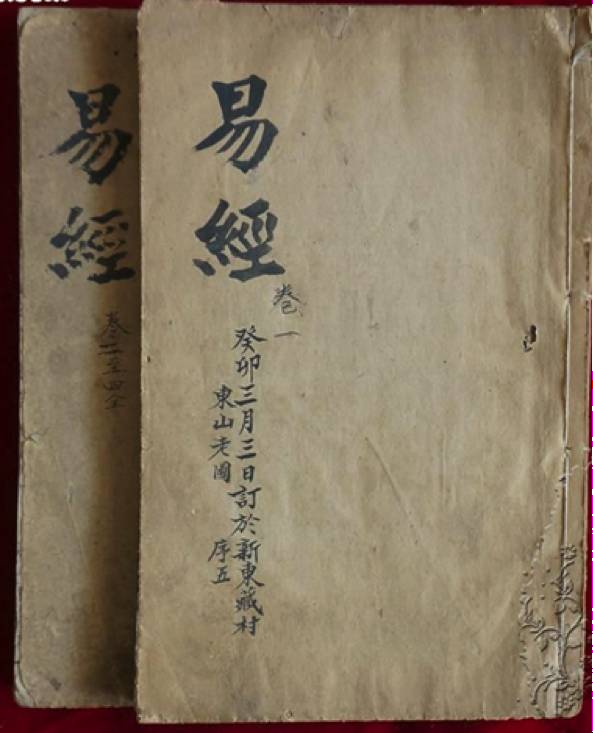 易經
卷一
癸卯三月三日訂於新東藏村
東山老圃 序五
易經
卷二至四全